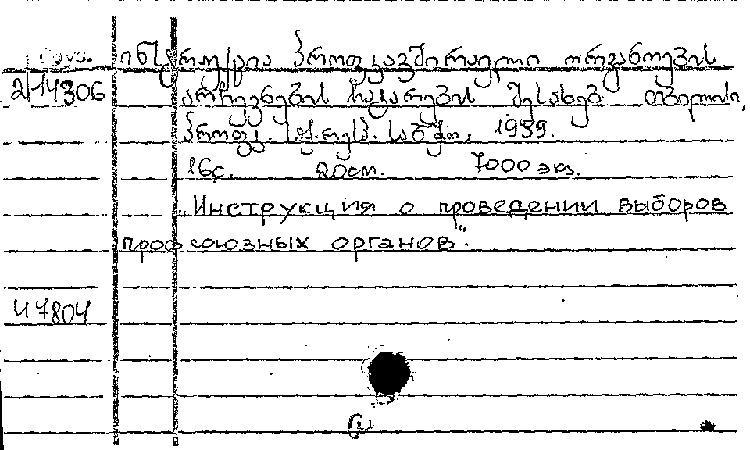 Груз. ინსტრუქცია პროფკავშირული ორგანოების
2/14306 არჩევნების ჩატარების შესახებ. თბილისი,
პროფგ. საქ. რესპ. საბჭო, 1959.
16с. 20см. 7000 экз.
„Инструкция о проведении выборов
профсоюзных органов".
47804